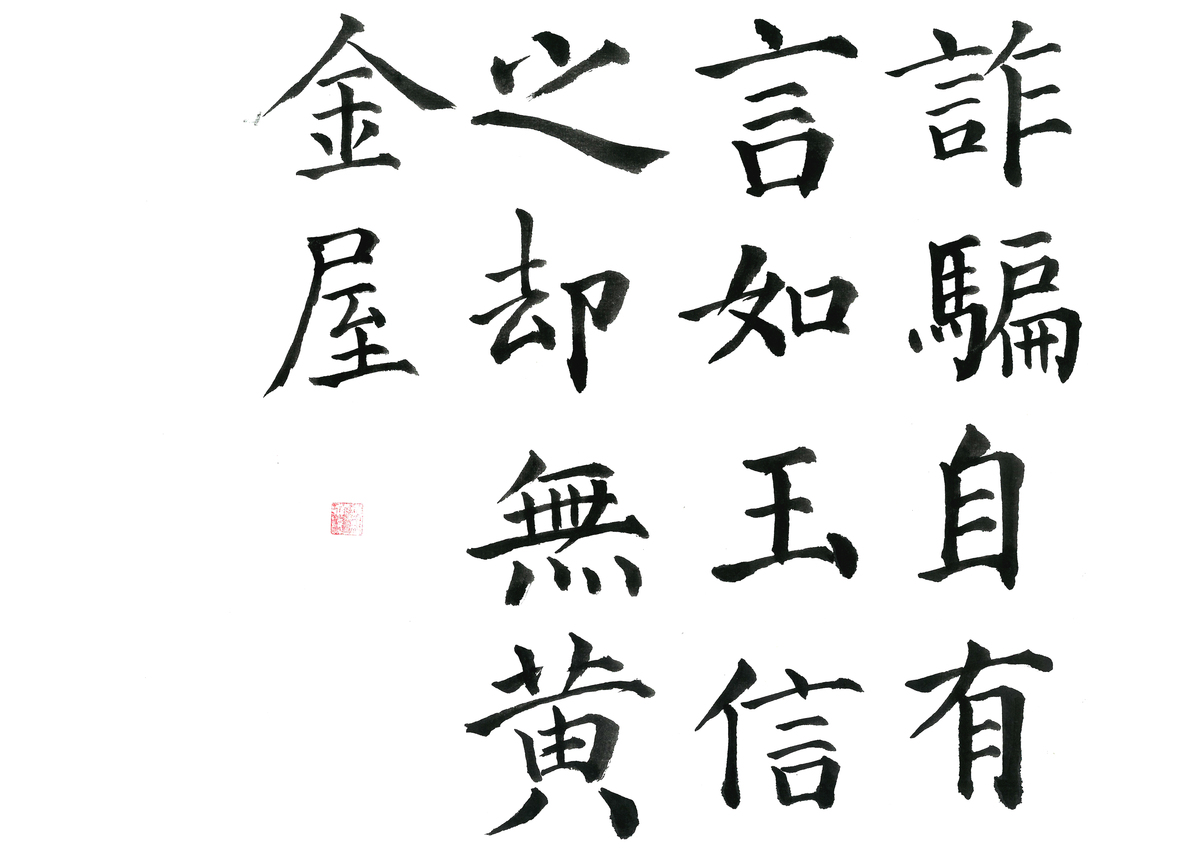 詐騙自有
言如玉信
之却無黄
金屋